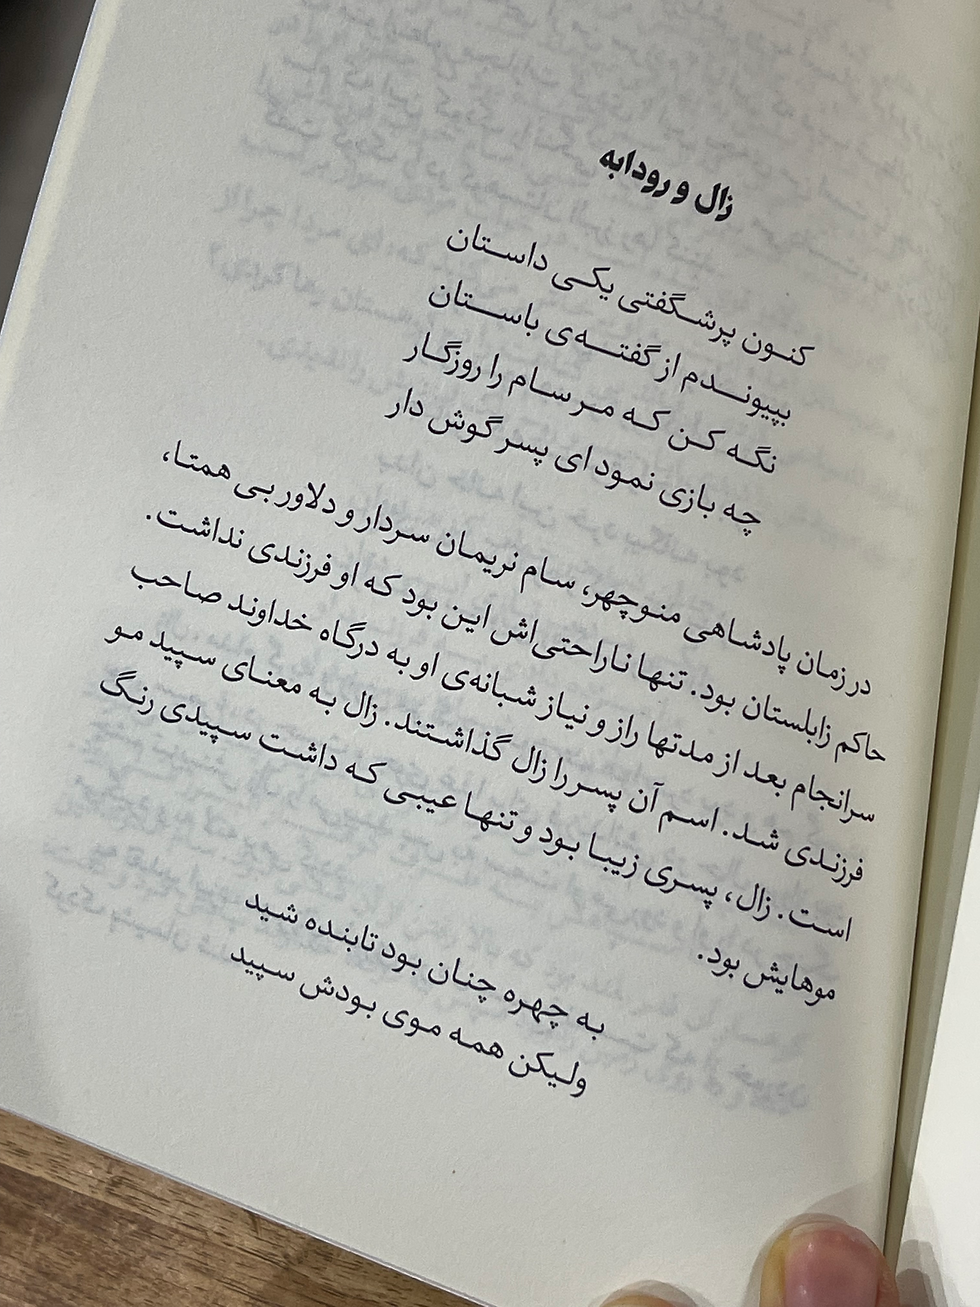 زال و رودابه
کنون پرشگفتی یکی داستان
بپیوندم از گفته‌ی باستان
نگه کن که مر سام را روزگار
چه بازی نمود ای پسر گوش دار
در زمان پادشاهی منوچهر، سام نریمان سردار و دلاور بی همتا،
حاکم زابلستان بود. تنها ناراحتی‌اش این بود که او فرزندی نداشت.
سرانجام بعد از مدتها راز و نیاز شبانه‌ی او به درگاه خداوند صاحب
فرزندی شد. اسم آن پسر را زال گذاشتند. زال به معنای سپید مو
است. زال، پسری زیبا بود و تنها عیبی که داشت سپیدی رنگ
موهایش بود.
به چهره چنان بود تابنده شید
ولیکن همه موی بودش سپید